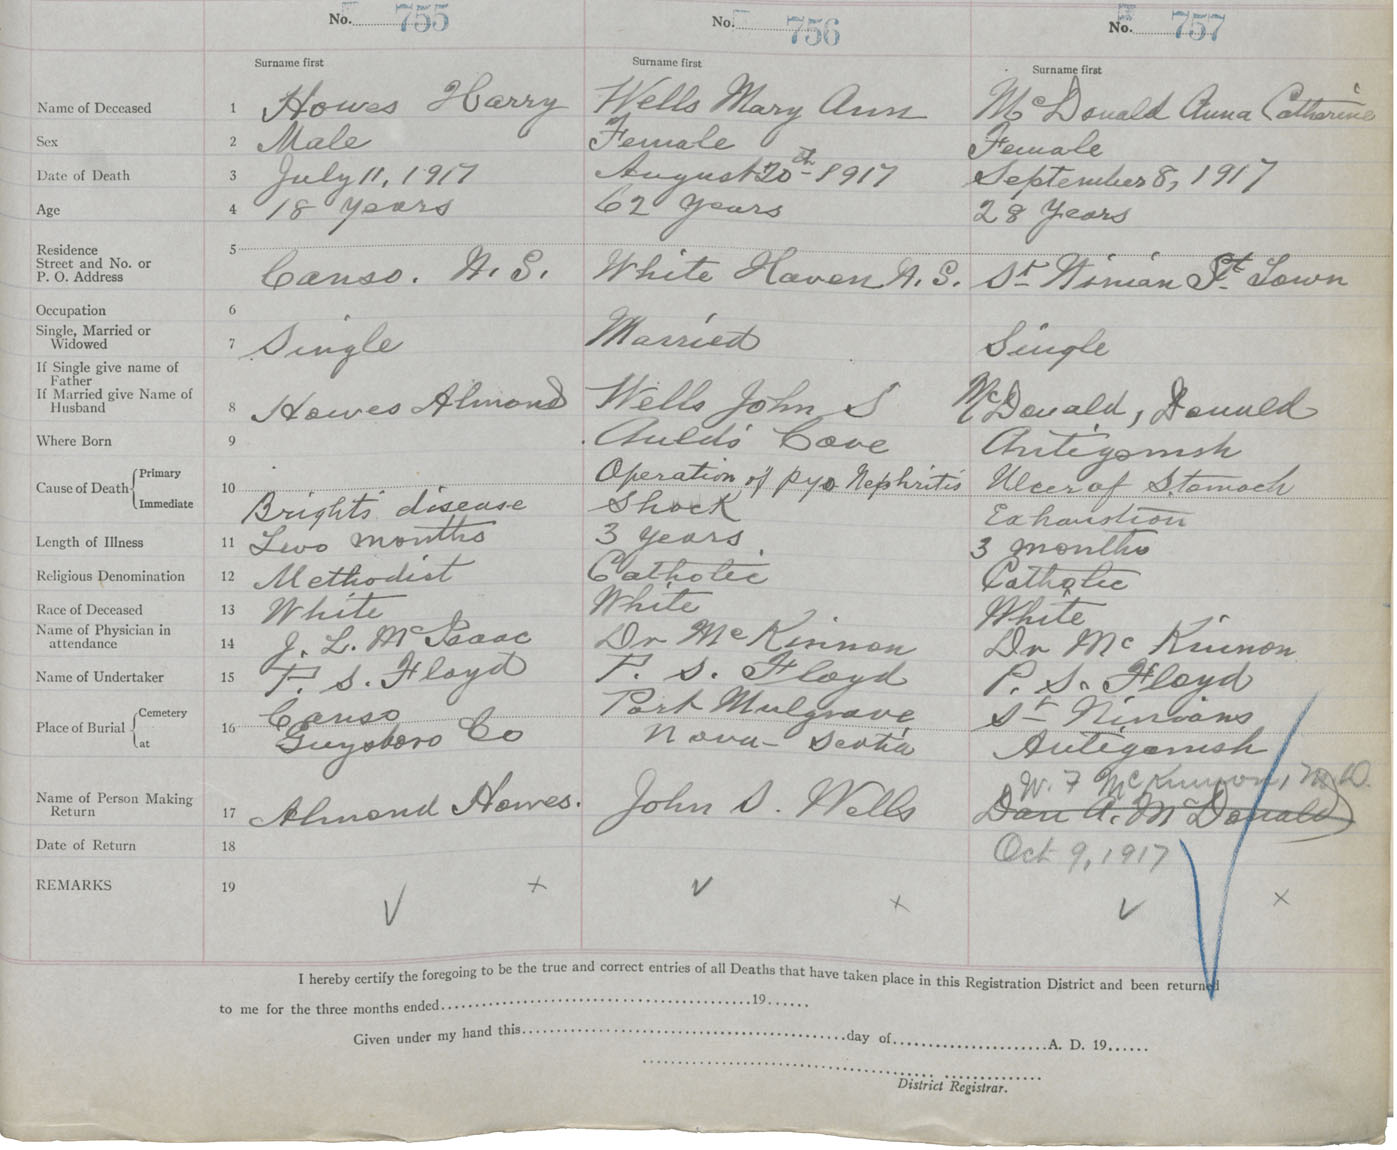 No. 755 No. 756 No. 757
Surname first Surname first Surname first
Name of Deceased 1 Howes Harry Wells Mary Ann McDonald Anna Catherine
Sex 2 Male Female Female
Date of Death 3 July 11, 1917 August 20th 1917 September 8, 1917
Age 4 18 years 62 years 28 years
Residence 5
Street and No. or
P. O. Address Canso. N. S. White Haven N. S. St Ninian St. Town
Occupation 6
Single, Married or
Widowed 7 Single Married Single
If Single give name of
Father
If Married give Name of
Husband 8 Howes Almond Wells John S McDonald, Donald
Where Born 9 Aulds Cove Antigonish
Cause of Death Primary 10 Operation of pyo Nephritis Ulcer of Stomach
Immediate Brights disease Shock Exhaustion
Length of Illness 11 Two months 3 years 3 months
Religious Denomination 12 Methodist Catholic Catholic
Race of Deceased 13 White White White
Name of Physician in
attendance 14 J. L. McIsaac Dr McKinnon Dr McKinnon
Name of Undertaker 15 P. S. Floyd P. S. Floyd P. S. Floyd
Place of Burial Cemetery 16 Canso Port Mulgrave St Ninians
at Guysboro Co Nova-Scotia Antigonish
W. F McKinnon, M.D.
Name of Person Making
Return 17 Almond Howes. John S. Wells Dan A. McDonald
Date of Return 18 Oct 9, 1917
REMARKS 19
I hereby certify the foregoing to be the true and correct entries of all Deaths that have taken place in this Registration District and been returned
to me for the three months ended 19
Given under my hand this day of A. D. 19
District Registrar.